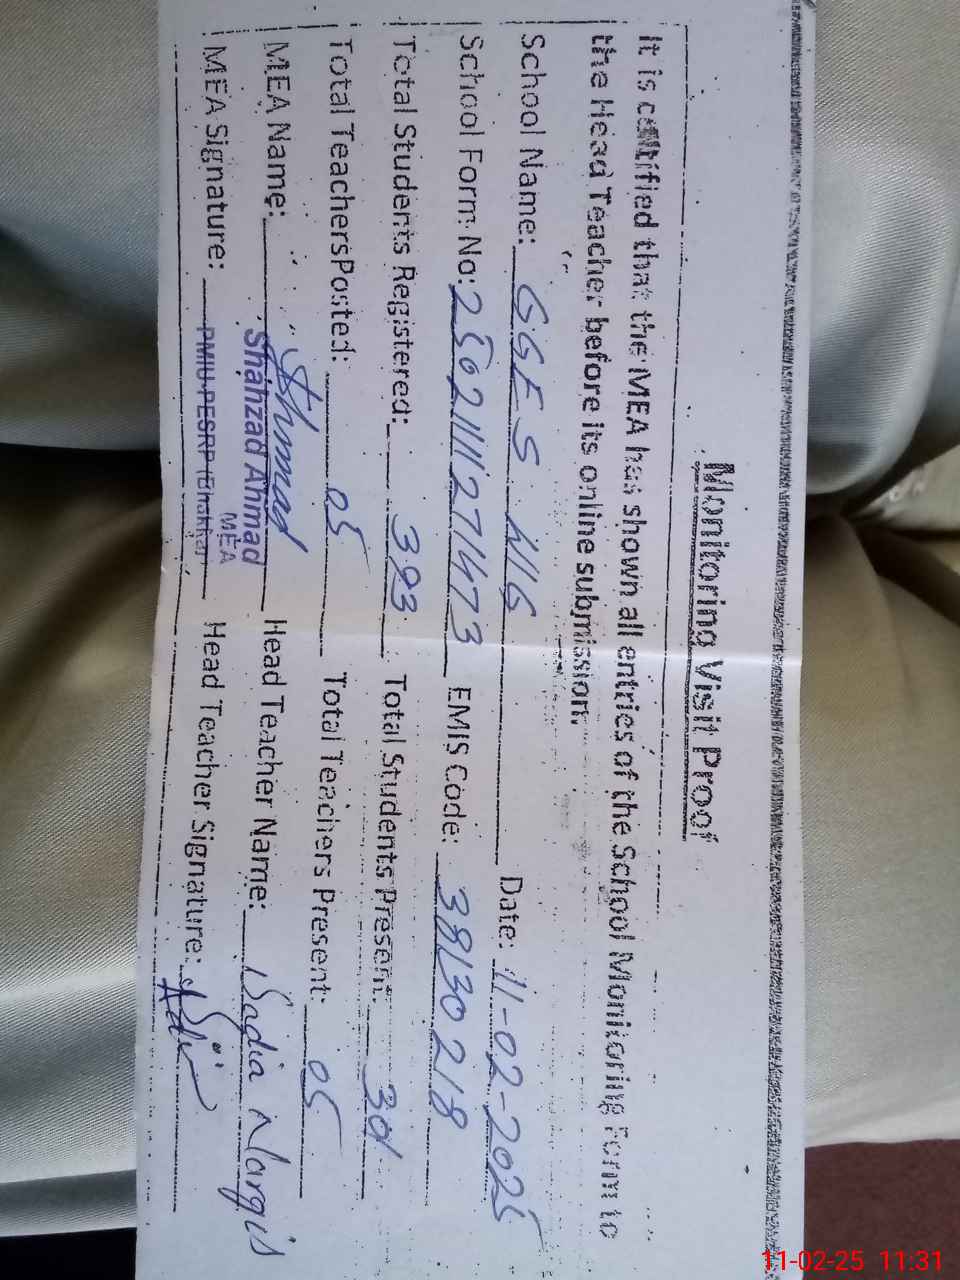 Monitoring Visit Proof
It is certified that the MEA has shown all entries of the School Monitoring Form to
the Head Teacher before its online submission.
School Name: GGES Date: 11-02-2025
School Form No: EMIS Code: 38130218
Total Students Registered: 393 Total Students Present: 301
Total TeachersPosted: 05 Total Teachers Present: 05
MEA Name: Ahmad Head Teacher Name: Sadia Nargis
Shahzad Ahmad
MEA
MEA Signature: PMIU-PESRP (Bhakkar) Head Teacher Signature:
11-02-25 11:31